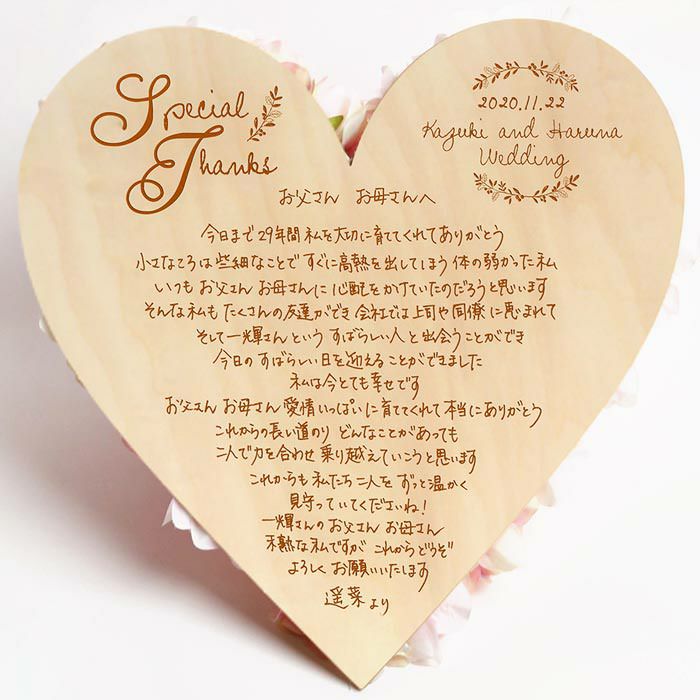 Special
Thanks
2020.11.22
Kazuki and Haruna
Wedding
お父さん お母さんへ
今日まで29年間 私を大切に育ててくれてありがとう
小さなころは些細なことで すぐに高熱を出してしまう 体の弱かった私
いつも お父さん お母さんに 心配をかけていたのだろうと思います
そんな私も たくさんの友達ができ 会社では上司や同僚に恵まれて
そして一輝さんという すばらしい人と出会うことができ
今日の すばらしい日を迎えることができました
私は今とても幸せです
お父さん お母さん 愛情いっぱいに育ててくれて 本当にありがとう
これからの長い道のり どんなことがあっても
二人で力を合わせ 乗り越えていこうと思います
これからも 私たち 二人を ずっと温かく
見守っていてくださいね!
一輝さんの お父さん お母さん
未熟な私ですが これからどうぞ
よろしく お願いいたします
遥菜 より